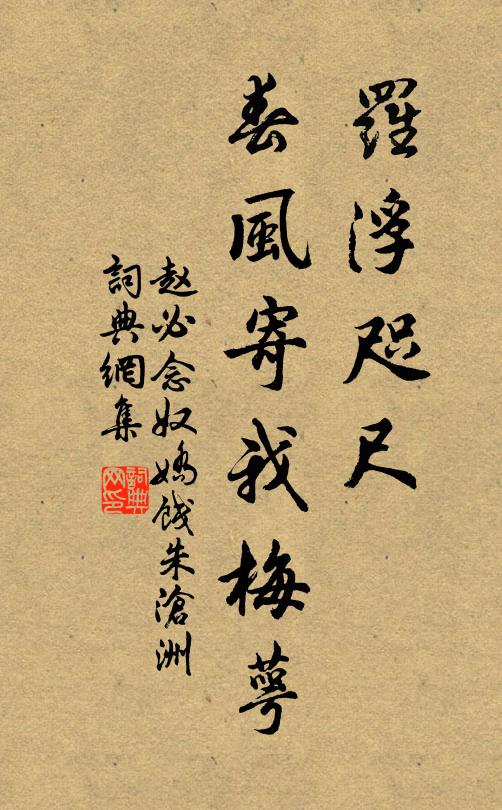 羅浮咫尺
春風寄我梅萼
赵必念奴嬌餞朱滄洲
詞典網集
詞典网印